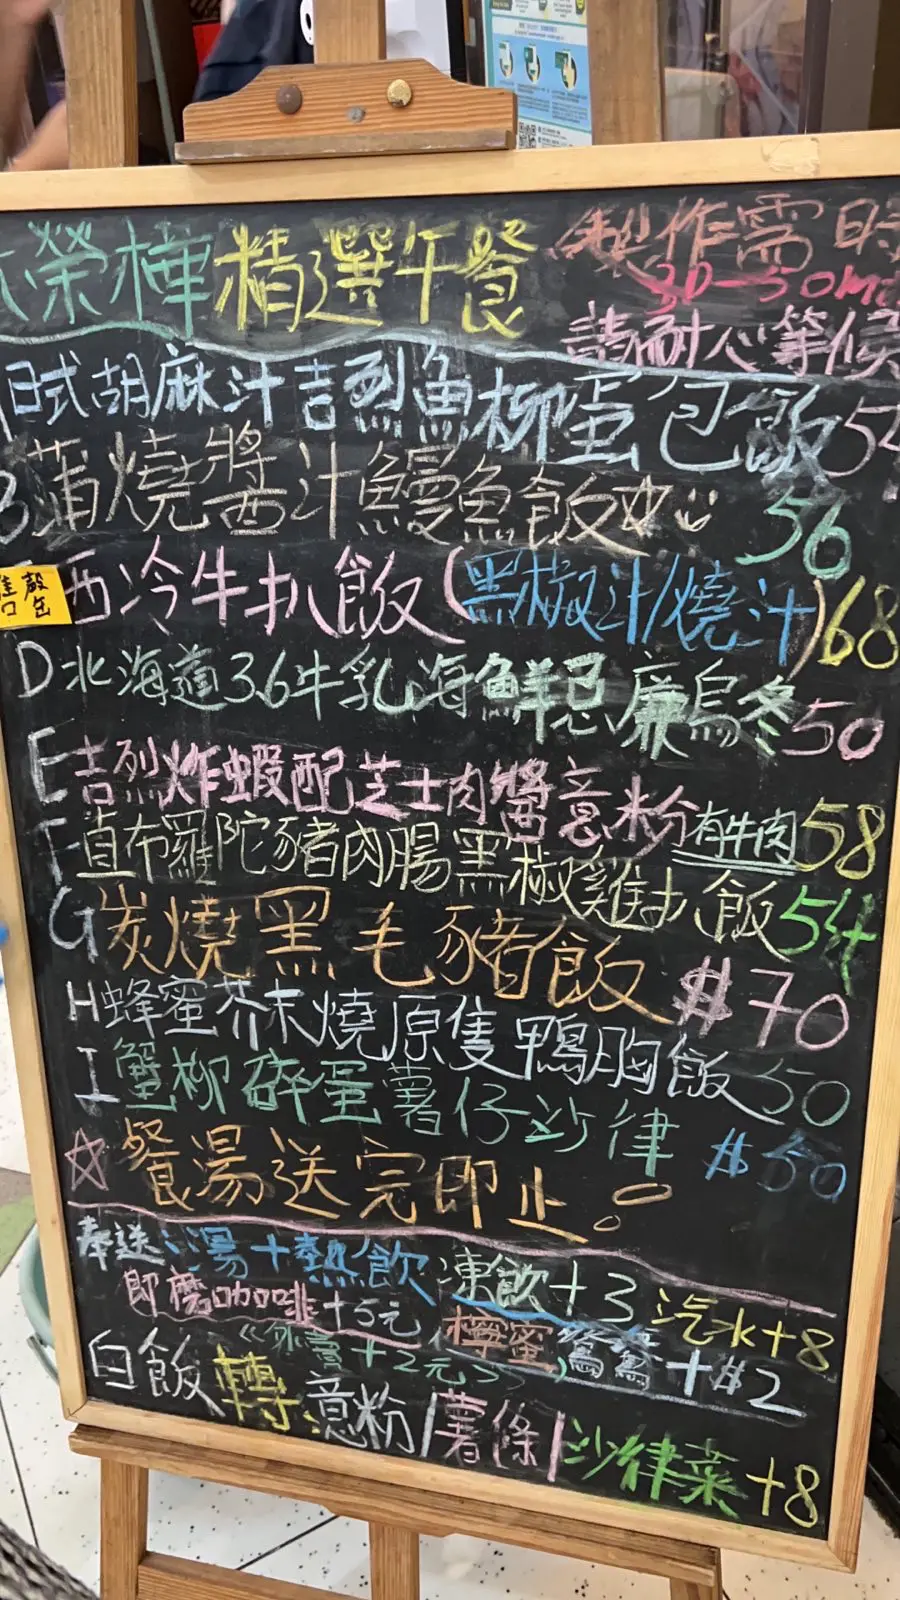 榮樺精選午餐
製作需時
30-50m
請耐心等候
日式胡麻汁吉烈魚柳蛋包飯54
B蒲燒醬汁鰻魚飯 56
售罄
西冷牛扒飯(黑椒汁/燒汁)68
D北海道3.6牛乳海鮮忌廉烏冬50
E吉烈炸蝦配芝士肉醬意粉有牛肉58
F直布羅陀豬肉腸黑椒雞扒飯54
G炭燒黑毛豬飯 $70
H蜂蜜芥末燒原隻鴨胸飯50
I蟹柳碎蛋薯仔沙律 $50
☆餐湯送完即止。
奉送:湯+熱飲 凍飲+3 汽水+8
即磨咖啡+5元 檸蜜 鴛鴦+$2
外賣+2元
白飯轉意粉/薯條/沙律菜+8